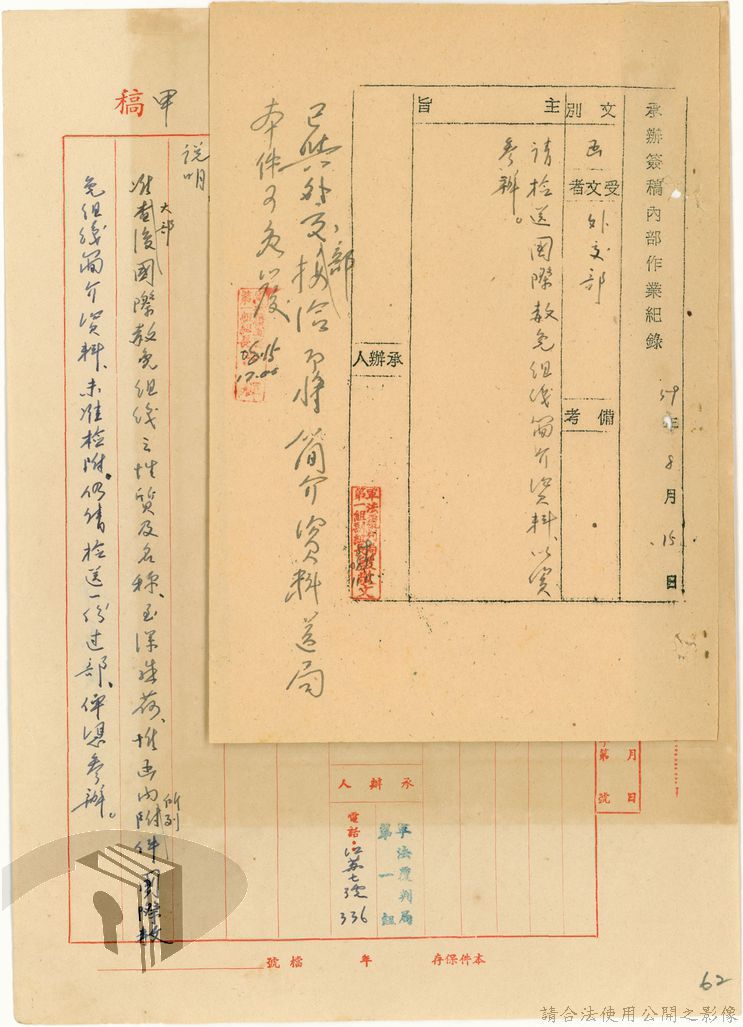 承辦簽稿內部作業紀錄 59年8月15日
文別 函 受文者 外交部 備考
主旨
請檢送國際赦免組織簡介資料、以資
參辦。
承辦人
軍法覆判局
第一組
已與外交部接洽即將簡介資料送局
本件可免發
05.15
17.00
甲稿
說明
准大部查復國際赦免組織之性質及名稱、至深感荷、惟函內所列附件國際赦
免組織簡介資料、未准檢附、仍請檢送一份过部、俾憑參辦。
月日
第號
承辦人
軍法覆判局
第一組
電話:
七號
336
本件保存 年 檔號
62
請合法使用公開之影像